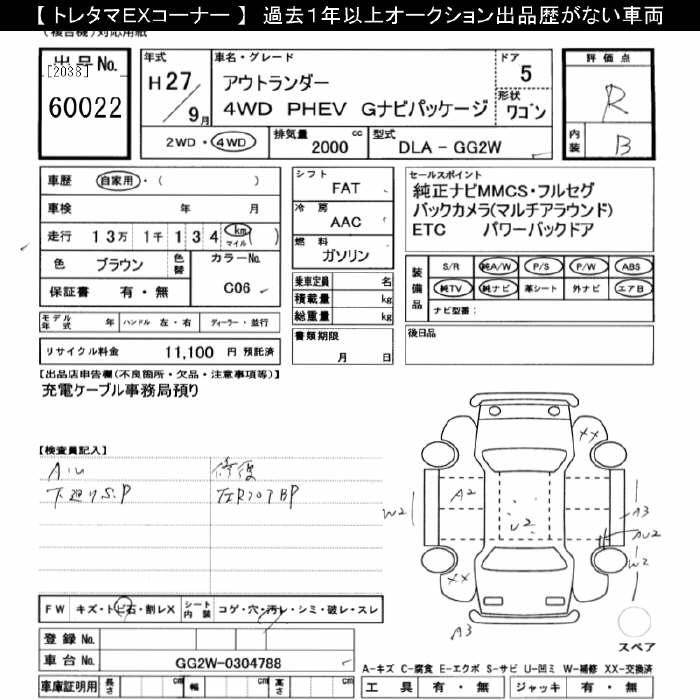 【 トレタマEXコーナー 】 過去1年以上オークション出品歴がない車両
出品No.
[2038]
60022
年式
H27/9月
車名・グレード
アウトランダー
4WD PHEV Gナビパッケージ
ドア
5
形状
ワゴン
2WD・4WD
排気量
2000 cc
型式
DLA - GG2W
評価点
R
内装
B
車歴 自家用・( )
車検 年 月
走行 13万 1千 1 3 4 km マイル ( )
色 ブラウン 色替
カラーNo.
C06
保証書 有・無
シフト
FAT
冷房
AAC
燃料
ガソリン
乗車定員 名
積載量 kg
総重量 kg
セールスポイント
純正ナビMMCS・フルセグ
バックカメラ(マルチアラウンド)
ETC パワーバックドア
装備品
S/R 純A/W P/S P/W ABS
純TV 純ナビ 革シート 外ナビ エアB
ナビ型番:
モデル年式 年 ハンドル 左・右 ディーラー・並行
書類期限
月 日
後日品
リサイクル料金 11,100 円 預託済
【出品店申告欄(不良箇所・欠品・注意事項等)】
充電ケーブル事務局預り
【検査員記入】
下廻りS.P
修復
XX
A2
W2
U2
A3
AU2
W2
XX
A3
スペア
FW キズ・トビ石・割レX シート内装 コゲ・穴・汚レ・シミ・破レ・スレ
登録 No.
車台 No. GG2W-0304788
車庫証明用 長さ cm 幅 cm 高さ cm
A-キズ C-腐食 E-エクボ S-サビ U-凹ミ W-補修 XX-交換済
工具 有・無 ジャッキ 有・無